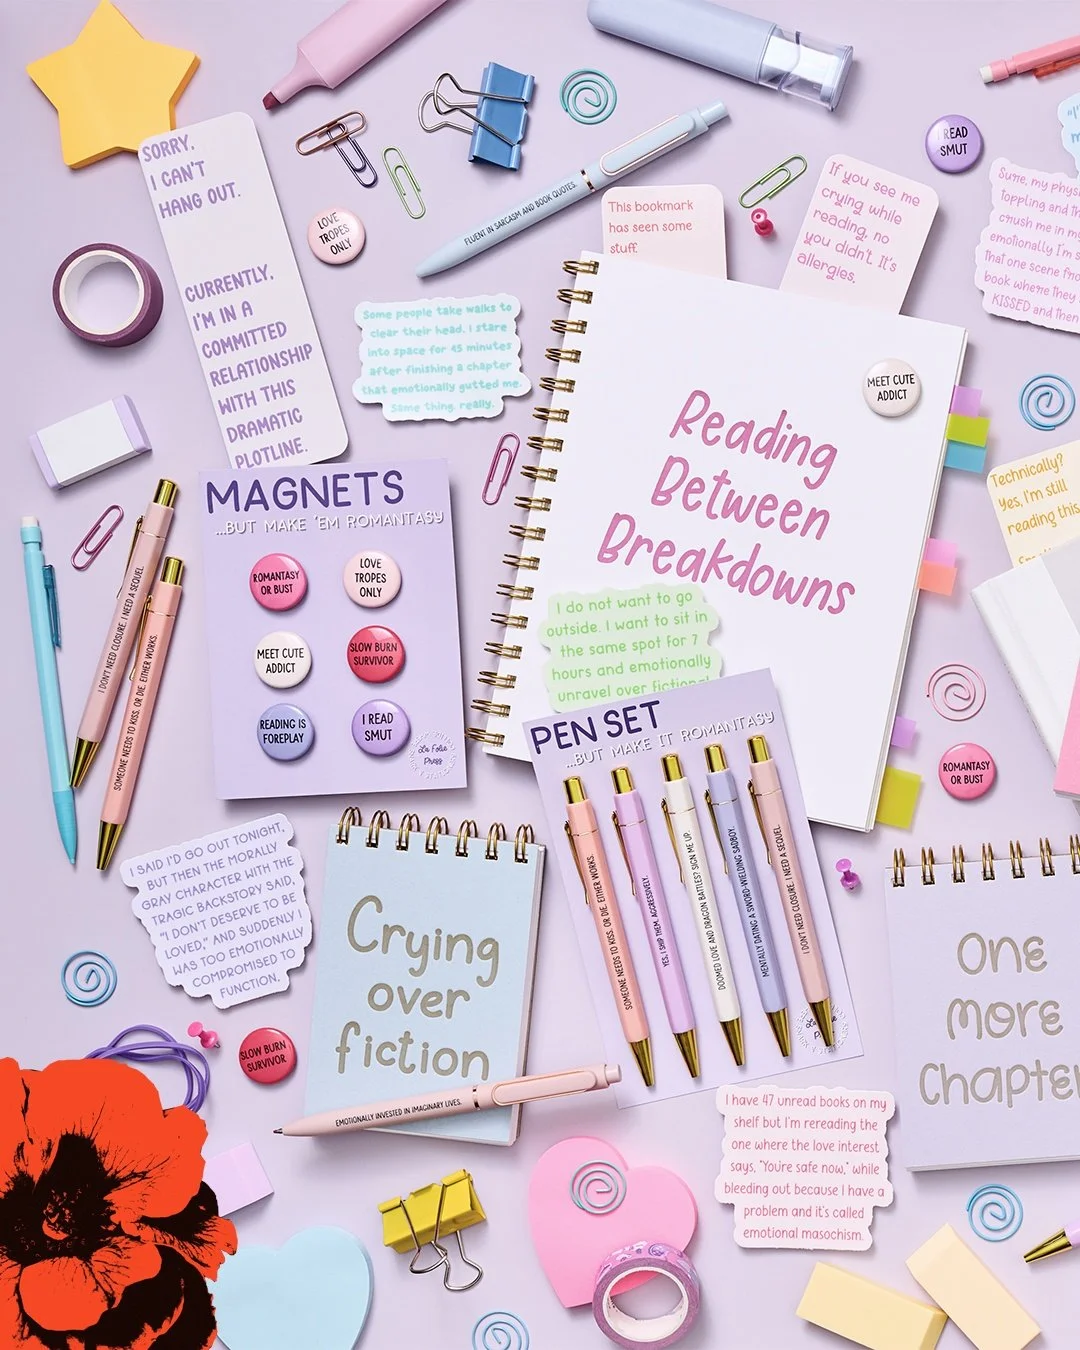 SORRY,
I CAN'T
HANG OUT.
CURRENTLY,
I'M IN A
COMMITTED
RELATIONSHIP
WITH THIS
DRAMATIC
PLOTLINE.
LOVE
TROPES
ONLY
FLUENT IN SARCASM AND BOOK QUOTES.
I READ
SMUT
This bookmark
has seen some
stuff.
If you see me
crying while
reading, no
you didn't. It's
allergies.
Sure, my
toppling and
crush me in my
emotionally I'm
that one scene
book where they
KISSED and then
Some people take walks to
clear their head. I stare
into space for 45 minutes
after finishing a chapter
that emotionally gutted me.
Same thing, really.
MEET CUTE
ADDICT
Reading
Between
Breakdowns
Technically?
Yes, I'm still
reading this.
MAGNETS
...BUT MAKE 'EM ROMANTASY
ROMANTASY
OR BUST
LOVE
TROPES
ONLY
MEET CUTE
ADDICT
SLOW BURN
SURVIVOR
READING IS
FOREPLAY
I READ
SMUT
La Folie
Press
I DON'T NEED CLOSURE. I NEED A SEQUEL.
SOMEONE NEEDS TO KISS. OR DIE. EITHER WORKS.
I do not want to go
outside. I want to sit in
the same spot for 7
hours and emotionally
unravel over fictional
PEN SET
...BUT MAKE IT ROMANTASY
SOMEONE NEEDS TO KISS. OR DIE. EITHER WORKS.
YES, I SHIP THEM. AGGRESSIVELY.
DOOMED LOVE AND DRAGON BATTLES? SIGN ME UP.
MENTALLY DATING A SWORD-WIELDING SADBOY.
I DON'T NEED CLOSURE. I NEED A SEQUEL.
La Folie
Press
ROMANTASY
OR BUST
I SAID I'D GO OUT TONIGHT,
BUT THEN THE MORALLY
GRAY CHARACTER WITH THE
TRAGIC BACKSTORY SAID,
"I DON'T DESERVE TO BE
LOVED," AND SUDDENLY I
WAS TOO EMOTIONALLY
COMPROMISED TO
FUNCTION.
Crying
over
fiction
One
More
Chapter
SLOW BURN
SURVIVOR
EMOTIONALLY INVESTED IN IMAGINARY LIVES.
I have 47 unread books on my
shelf but I'm rereading the
one where the love interest
says, "You're safe now," while
bleeding out because I have a
problem and it's called
emotional masochism.